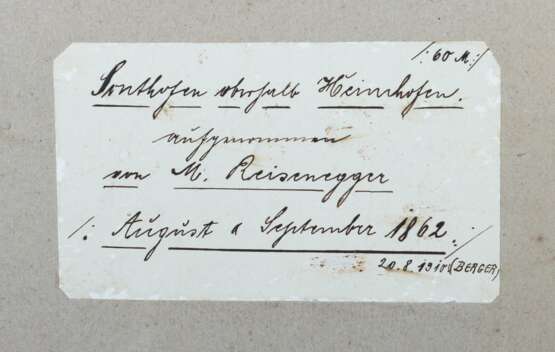 /: 60 M :/
Sonthofen oberhalb Heimhofen.
aufgenommen
von M. Reisenegger
/: August a September 1862 :/
20.8.1910 (BERGER)